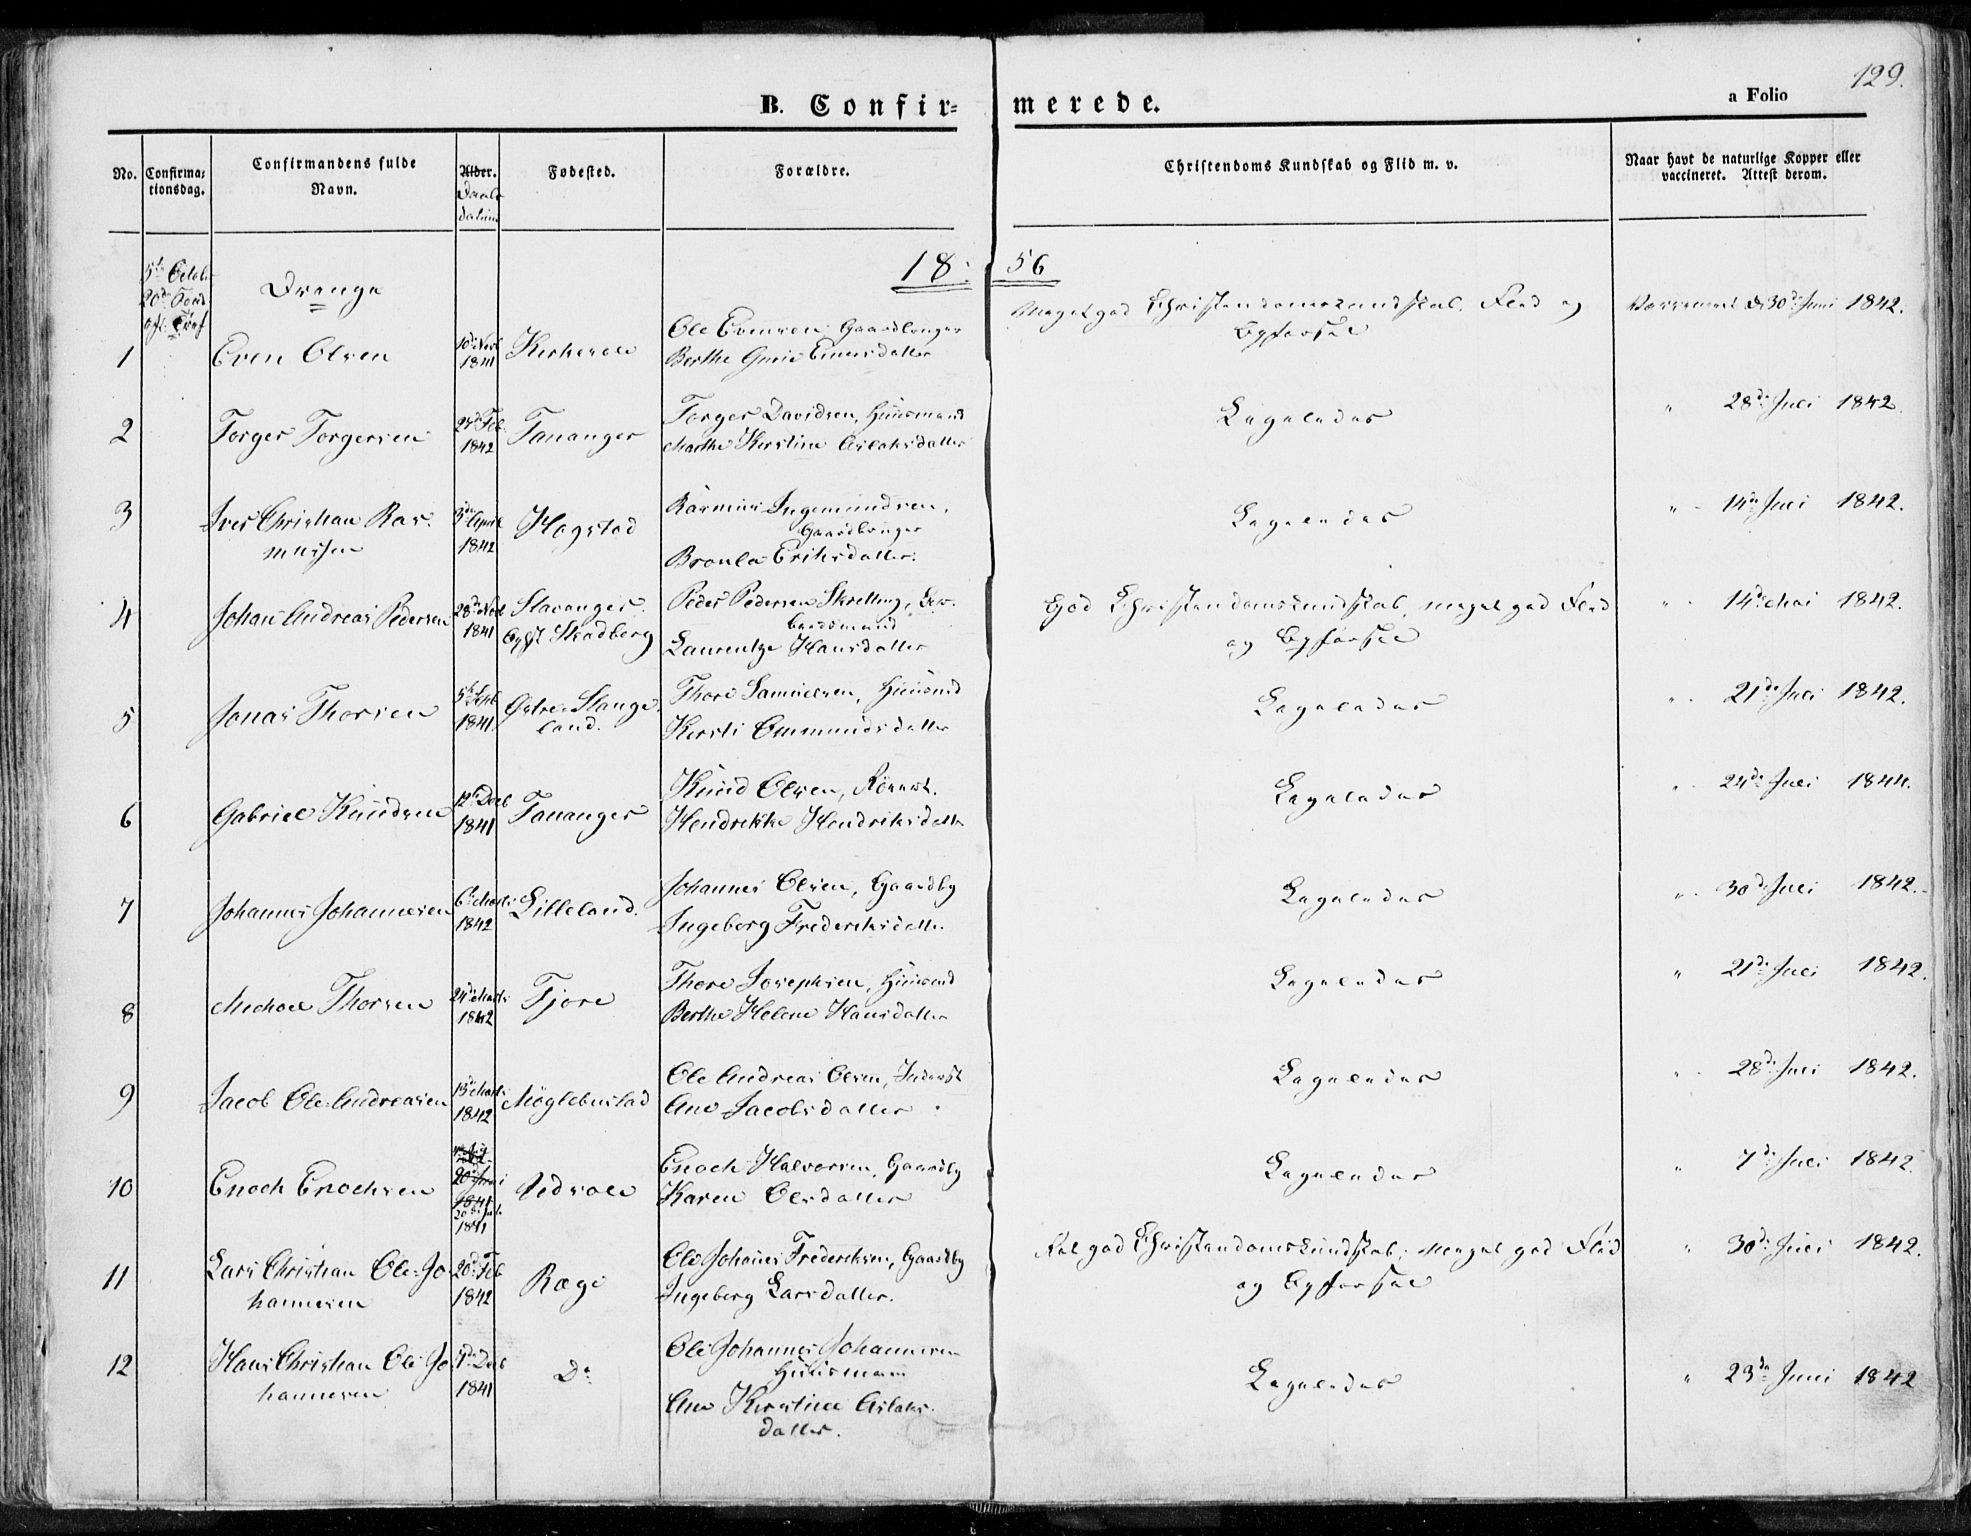 129.
B. Confir=merede. a Folio
No.
Confirma=
tionsdag.
Confirmandens fulde
Navn.
Alder.
Daabs
datum
Fødested.
Forældre.
Christendoms Kundskab og Flid m. v.
Naar havt de naturlige Kopper eller
vaccineret. Attest derom.
18 56
5te Octob.
20de Sønd.
aft. Tref
Drenge
1 Even Olsen
10de Novb
1841
Ole Evensen Gaardbruger
Berthe Gurie Einersdatter
Meget god Christendomskundskab, Flid og
Opførsel
Vaccineret d. 30de Juni 1842.
2 Torger Torgersen
24de Feb.
1842
Tananger
Torger Davidsen, Huusmand
Marthe Kirstine Aslaksdatter
Ligeledes
" 28de Juli 1842.
3 Iver Christian Ras=
mussen
3de April
1842
Hogstad
Rasmus Ingemundsen,
Gaardbruger
Broula Eriksdatter.
Ligeledes
" 14de Juli 1842.
4 Johan Andreas Pedersen
28de Novb
1841
Stavanger
opf. Skadberg
Peder Pedersen Skretting,
Laurentze Hansdatter
God Christendomskundskab, meget god Flid
og Opførsel
" 14de Mai 1842.
5 Jonas Thorsen
5te Sepb
1841
Østre Stange=
land.
Thore Samuelsen, Huusmd
Kersti Ommundsdatter
Ligeledes
" 21de Juli 1842.
6 Gabriel Knudsen
12te Decb
1841
Tananger
Knud Olsen,
Hendrikke Hendriksdatter
Ligeledes
" 24de Juli 1844.
7 Johannes Johannesen
6te Marts
1842
Lilleland.
Johannes Olsen, Gaardby
Ingeborg Frederiksdatter
Ligeledes
" 30de Juli 1842.
8 Michael Thorsen
24de Marts
1842
Tjore
Thore Josephsen, Huusmd
Berthe Helene Hansdatter
Ligeledes
" 21de Juli 1842.
9 Jacob Ole Andreasen
13de Marts
1842
Møglebustad
Ole Andreas Olsen, Inderst
Ane Jacobsdatter
Ligeledes
" 28de Juli 1842.
10 Enoch Enochsen
20de Juni
1841
20de Juli
1841
Enoch Halvorsen, Gaardby
Karen Olsdatter
Ligeledes
" 7de Juli 1842.
11 Lars Christian Ole Jo=
hannesen
20de Feb
1842
Ræge
Ole Johannes Frederiksen, Gaardby
Ingeborg Larsdatter.
god Christendomskundskab, meget god Flid
og Opførsel
" 30de Juli 1842.
12 Hans Christian Ole Jo=
hannesen
Decb
1841
Do
Ole Johannes Johannesen
Huusmand
Ane Kirstine Aslaks=
datter.
Ligeledes
" 23de Juni 1842